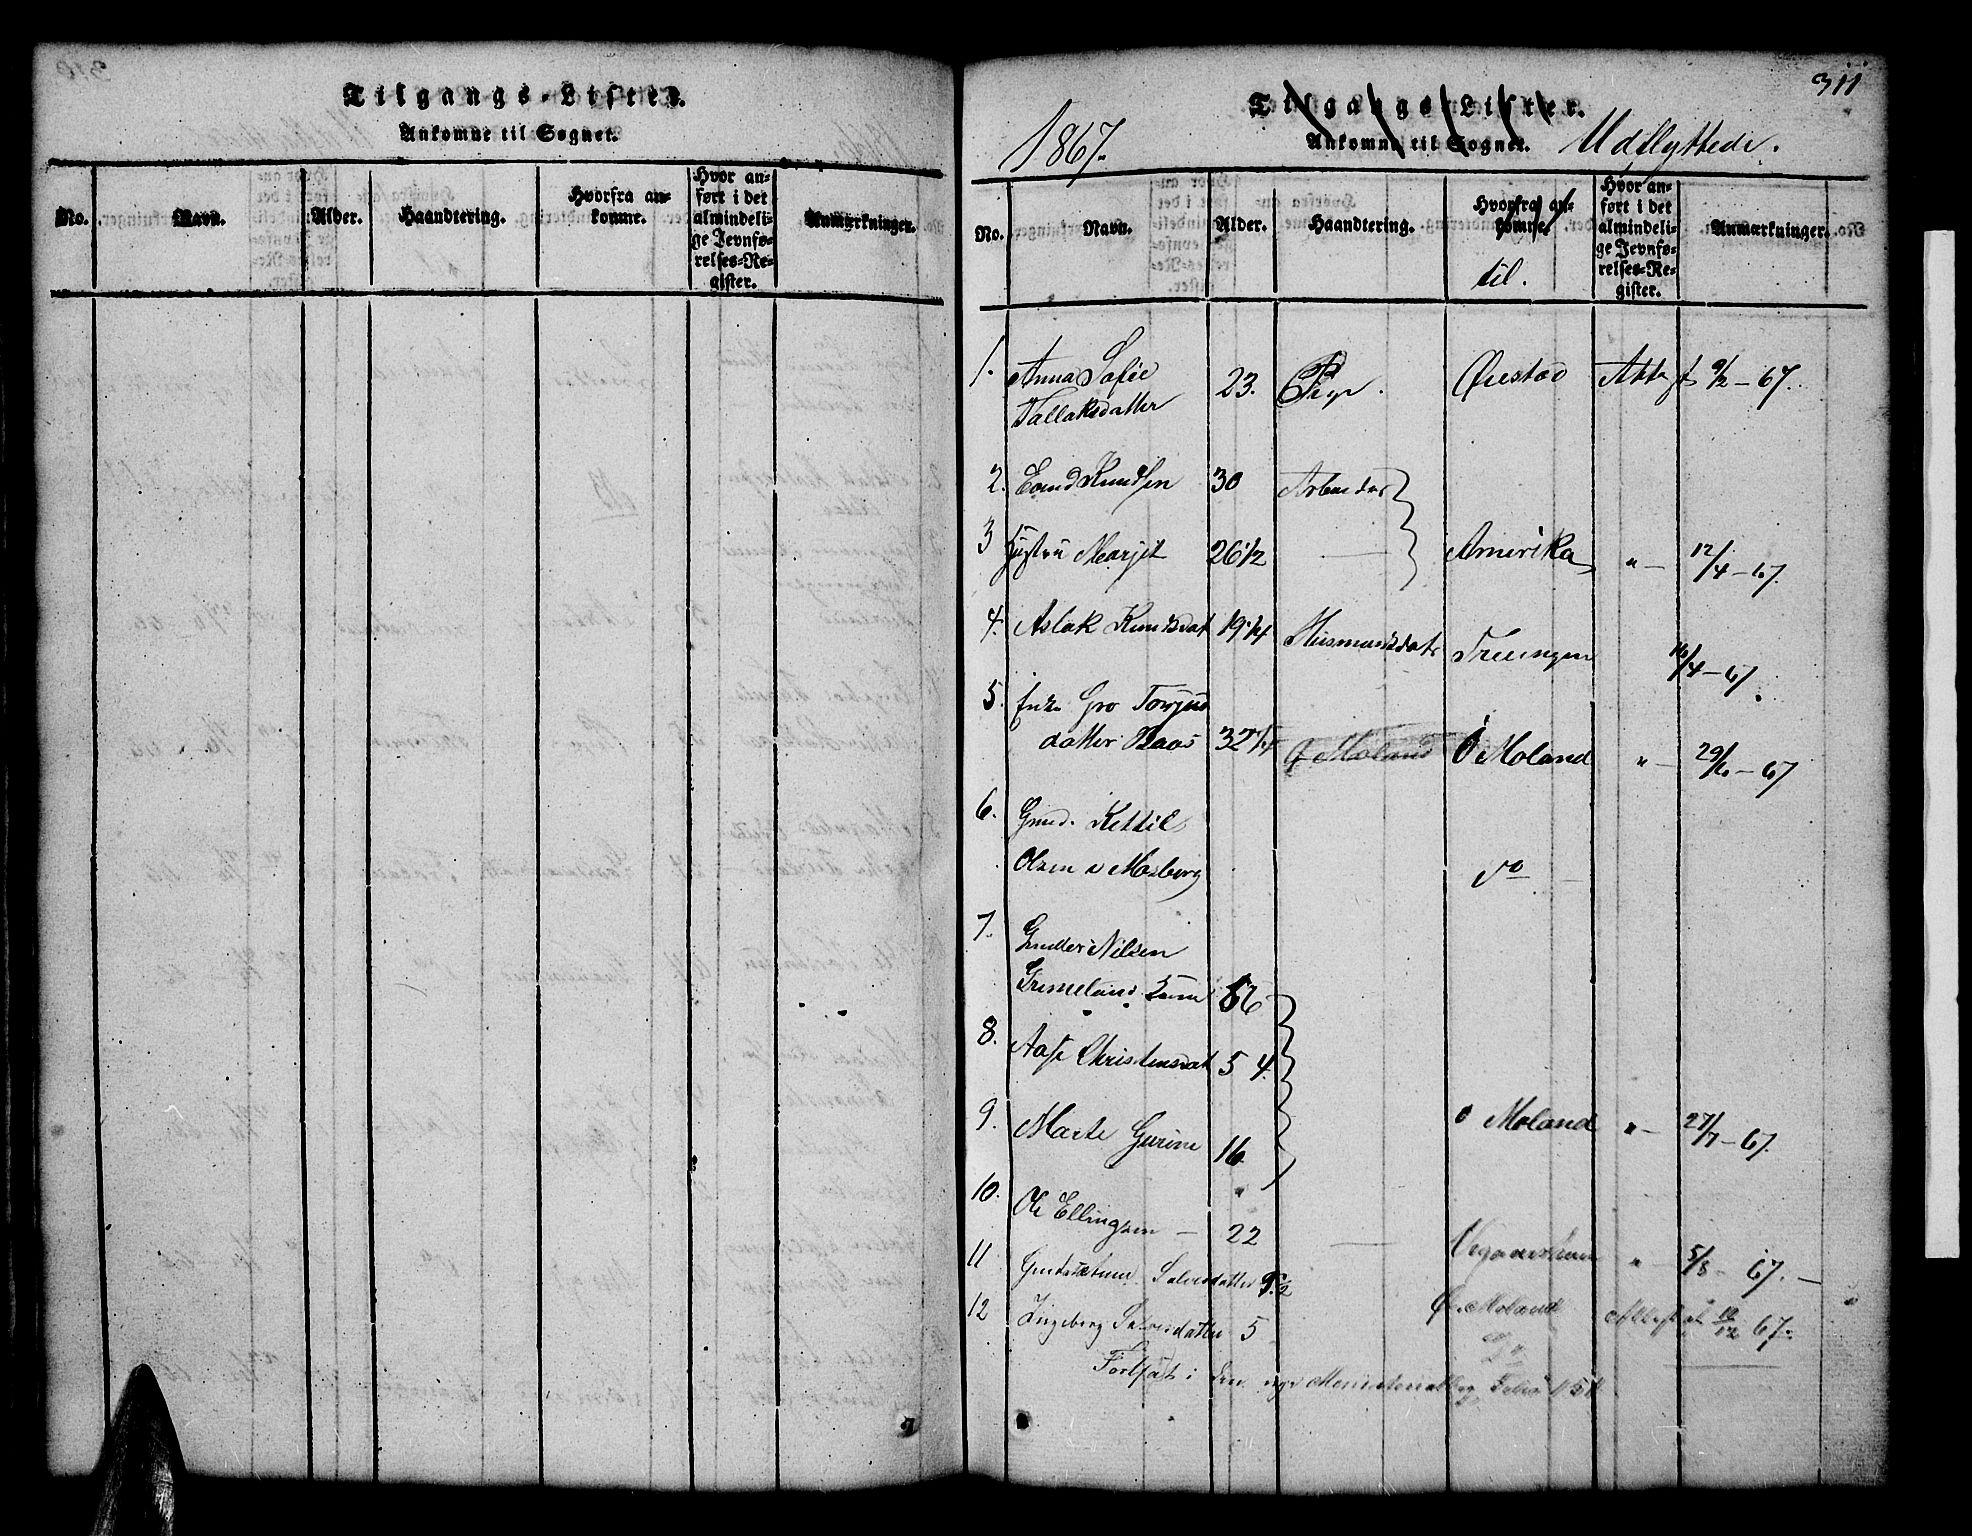 Tilgangs-Lister.
Ankomne til Sognet.
No.
Navn.
Alder.
Haandtering.
Hvorfra an-
komne.
Hvor an-
ført i det
almindeli-
ge Jevnfø-
relses-Re-
gister.
Anmærkninger.
311
Tilgangs-Lister.
1867.
Ankomne til Sognet.
Udflyttede.
No.
Navn.
Alder.
Haandtering.
Hvorfra an-
komne.
til.
Hvor an-
ført i det
almindeli-
ge Jevnfø-
relses-Re-
gister.
Anmærkninger.
1. Anna Sofie 23. Pige. Øiestad Attest 9/2 - 67.
Tallaksdatter
2. Knudsen 30 Arbeider
3 Hustru Marjit 26 1/2 Amerika " - 12/4 - 67.
4. Aslak Knudsdat 19 1/4 Husmandsdat. 16/4 - 67.
5. Enke Gro Torjus
datter Baas 32 Ø Moland Ø Moland " - 29/6 - 67
6. Gmd. Kettil
Olsen Mosberg do
7. Gunder Nilsen
Grimeland 56
8. Aase Christensdat 54.
9. Marte Gurine 16 Ø Moland " - 27/7 - 67.
10. Ole Ellingsen - 22 Vegaardsheien " - 5/8 - 67. -
11 Salvesdatter Ø. Moland Attest at 12/12 67.
12 Ingeborg Salvesdatter 5 Do
Fortsat i den nye Ministerialbog Folio 151